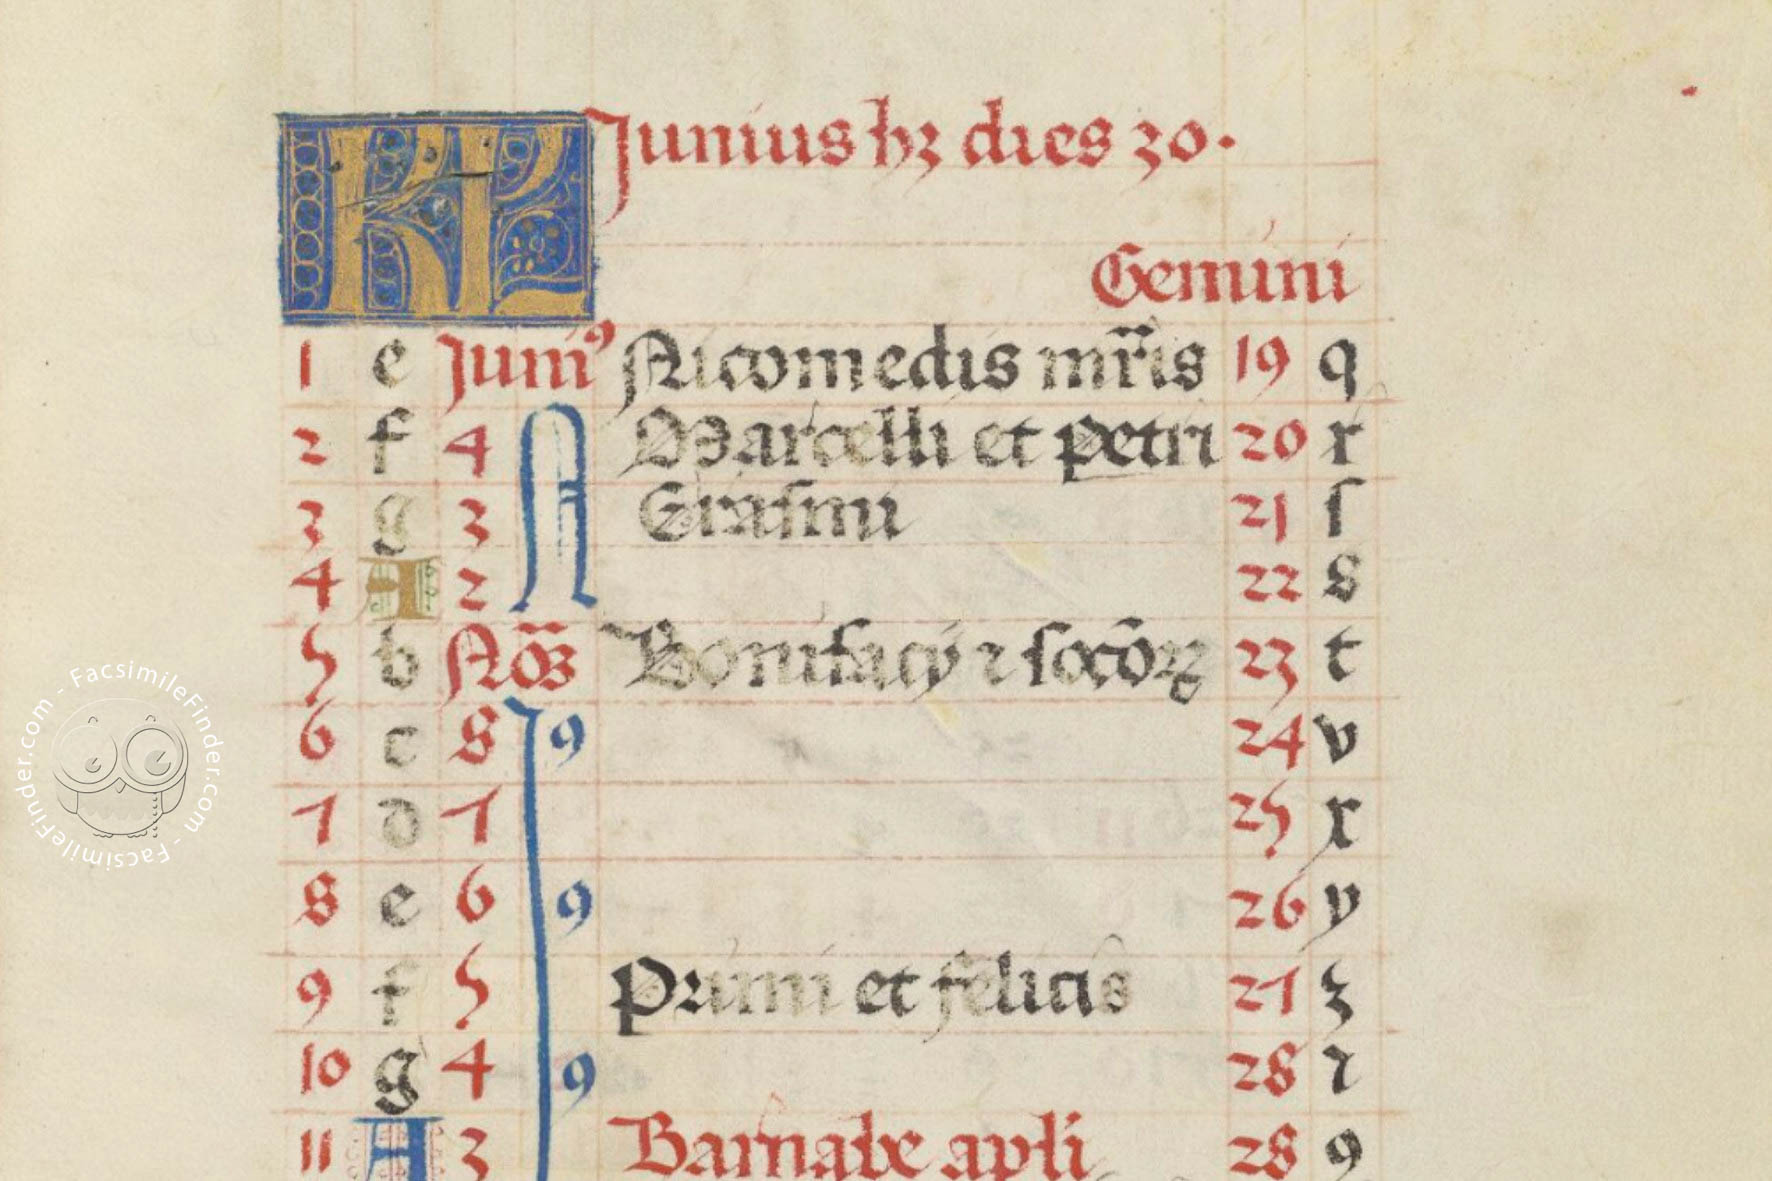 KL Junius hꝫ dies 30.
Gemini
1 e Juniꝰ Nicomedis mr̃is 19 q
2 f 4 N Marcelli et petri 20 r
3 g 3 Erasmi 21 ſ
4 A 2 22 s
5 b No᷑ꝫ Bonifacÿ ⁊ ſocioꝝ 23 t
6 c 8 J 9 24 v
7 d 7 25 x
8 e 6 9 26 y
9 f 5 Primi et felicis 27 z
10 g 4 9 28 ⁊
11 A 3 Barnabe apli 28 9
FacsimileFinder.com - FacsimileFinder.com -